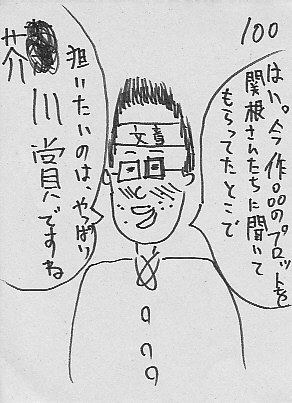 100
はい。今作品のプロットを
関根さんたちに聞いて
もらってたとこで
文章
狙いたいのは、やっぱり
芥川賞ですね